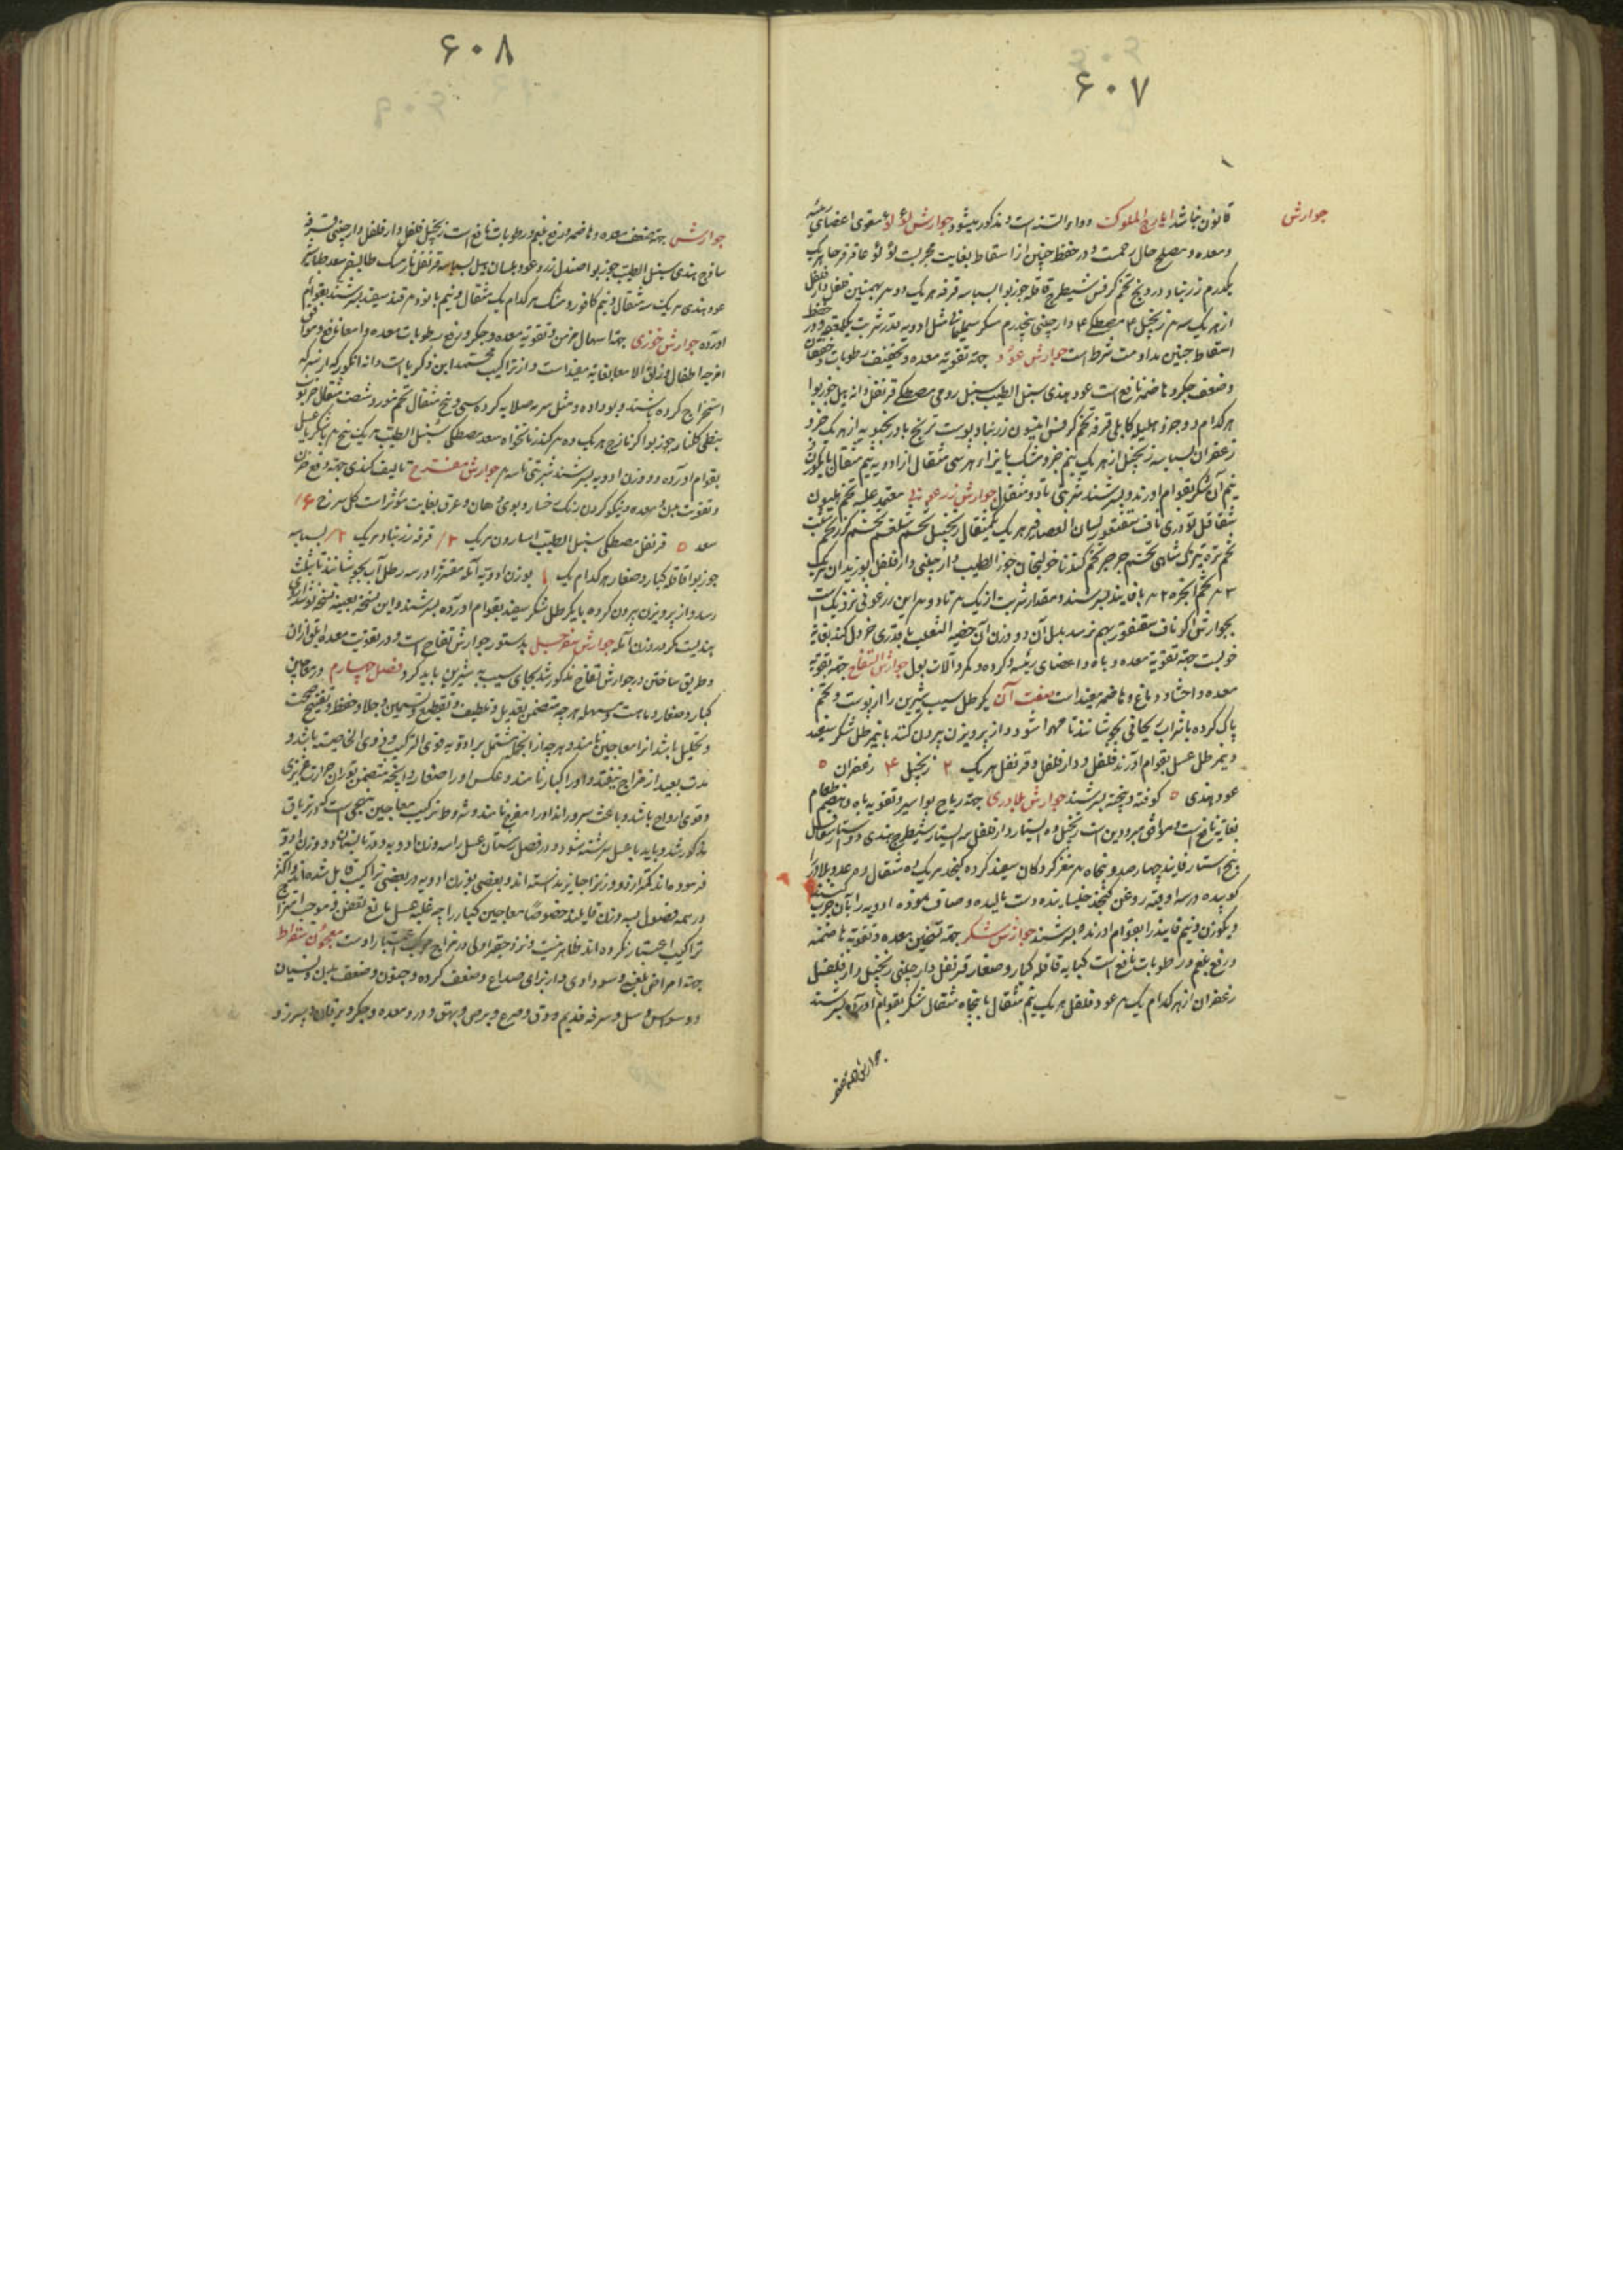 ۶۰۷
جوارش
قانون نباشد ایارج الملوک دواء السنه است و مذکور میشود جوارش لؤلؤ مقوی اعضای رئیسه
و معده و مصلح حال رحمست و در حفظ جنین از اسقاط بغایت مجربست لؤلؤ عاقرقرحا هر یک
یکدرم زرنباد درونج تخم کرفس شیطرج قاقله جوزبوا بسباسه قرفه هر یک دو م بهمنین فلفل دارفلفل
از هر یک سه م زنجبیل ۴ مصطکی ۴ دارچینی پنجدرم سکر سلیمانی مثل ادویه قدر شربت یکملعقه و در حفظ
اسقاط جنین مداومت شرط است جوارش عود جهة تقویة معده و تجفیف رطوبات و خفقان
و ضعف جگر و هاضمه نافع است عود هندی سنبل الطیب سنبل رومی مصطکی قرنفل دانه هیل جوزبوا
هر کدام دو جزو هلیله کابلی قرفه تخم کرفس انیسون زرنباد پوست ترنج بادرنجبویه از هر یک جزو
زعفران بسباسه زنجبیل از هر یک نیم جزو مشک بازاء هر سی مثقال از ادویه نیم مثقال با یکوزن
نیم آن شکر بقوام آورند و بسرشند شربتی تا دو مثقال جوارش زرعونی معتمد علیه تخم هلیون
شقاقل تودری ناف سقنقور لسان العصافیر هر یک یکمثقال زنجبیل تخم شلغم تخم گزر تخم شبت
تخم تره تیزک شاهی تخم جرجیر تخم گندنا خولنجان جوز الطیب دارچینی دارفلفل بوزیدان هر یک
۲ م تخم انجره ۲ م با فانید بسرشند و مقدار شربت از یک م تا دو م این زرعونی نزدیک است
بجوارش اگر ناف سقنقور بهم نرسد بدل آن دو وزن آن خصیه الثعلب با قدری خردل کنند بغایة
خوبست جهة تقویة معده و باه و اعضای رئیسه و گرده و کمر و آلات بول جوارش التفاح جهة تقویة
معده و احشا و دماغ و هاضمه مفید است صفت آن یکرطل سیب شیرین را از پوست و تخم
پاک کرده با شراب ریحانی بجوشانند تا مهرا شود و از پرویزن بیرون کنند با نیمرطل شکر سفید
و نیمرطل عسل بقوام آورند فلفل و دارفلفل و قرنفل هر یک ۲ زنجبیل ۴ زعفران ۵
عود هندی ۵ کوفته و بیخته بسرشند جوارش بلادری جهة ریاح بواسیر و تقویه باه و هضم طعام
بغایة نافع است و موافق مبرودین است زنجبیل ده استار دارفلفل سه استار شیطرج هندی دو استار
پنج استار فانید چهارصد و پنجاه م مغز گردکان سفید کرده کنجد هر یک ده مثقال و م عدد بلادر را
کوبیده در سه اوقیه روغن کنجد خیسانیده دست مالیده و صاف نموده ادویه را بآن چرب کنند
و یکوزن و نیم فانید را بقوام آورند بسرشند جوارش شکر جهة تسخین معده و تقویة هاضمه
و رفع بلغم و رطوبات نافع است کبابه قاقله کبار و صغار قرنفل دارچینی زنجبیل دارفلفل
زعفران از هر کدام یک م عود فلفل هر یک نیم مثقال با پنجاه مثقال شکر بقوام آورده بسرشند
جوارش جهة ضعف
۶۰۸
جوارش جهة ضعف معده و هاضمه و رفع بلغم و رطوبات نافع است زنجبیل فلفل دارفلفل دارچینی قرفه
ساذج هندی سنبل الطیب جوزبوا صندل زرد عود بلسان هیل بسباسه قرنفل نارمشک طالیسفر سعد طباشیر
عود هندی هر یک سه مثقال و نیم کافور و مشک هر کدام یک مثقال و نیم با نود م قند سفید بسرشند بقوام
آورده جوارش خوزی جهة اسهال مزمن و تقویة معده و جگر و رفع رطوبات معده و امعا نافع و موافق
امزجه اطفال و زلق الامعا بغایة مفید است و از تراکیب محمد ابن زکریا است دانه انگور که از سرکه
استخراج کرده باشند و بو داده و مثل سرمه صلایه کرده سی و پنج مثقال تخم مورد شصت مثقال خرنوب
نبطی گلنار جوزبوا کزمازج هر یک ده م کندر نانخواه سعد مصطکی سنبل الطیب هر یک پنج م با شکر یا عسل
بقوام آورده دو وزن ادویه بسرشند شربتی تا سه م جوارش مفرح تالیف کندی جهة رفع حزن
و تقویت دل و معده و نیکو کردن رنگ رخسار و بوی دهان و عرق بغایت مؤثر است گل سرخ ۶
سعد ۵ قرنفل مصطکی سنبل الطیب اسارون هر یک ۳ قرفه زرنباد هر یک ۲ بسباسه
جوزبوا قاقله کبار و صغار هر کدام یک ۱ بوزن ادویه آمله مقشر را در سه رطل آب بجوشانند تا بثلث
رسد و از پرویزن بیرون کرده با یکرطل شکر سفید بقوام آورده بسرشند و این نسخه بعینه نسخه نوشداروی
هندیست مگر در وزن آمله جوارش سفرجلی بدستور جوارش تفاح است و در تقویت معده ابلغ از آن
و طریق ساختن در جوارش تفاح مذکور شد بجای سیب به شیرین باید کرد فصل چهارم در معاجین
کبار و صغار و ماهیت و مسهله هر چه متضمن تعدیل و تلطیف و تقطیع و تسمین و جلا و حفظ و تفتیح صحت
و تحلیل باشد آنرا معاجین نامند و هر چه از آنجمله مشتمل بر ادویه قوی الترکیب و ذوی الخاصیت باشد و
مدت بعید از مزاج نیفتد و او را کبار نامند و عکس او را صغار و آنچه متضمن ثوران حرارت غریزی
و قوی ارواح باشد و باعث سرور اند او را مفرح نامند و شروط ترکیب معاجین نهجی است که در تریاق
مذکور شد و باید با عسل سرشته شود و در فصل زمستان عسل را سه وزن ادویه و در تابستان دو وزن ادویه
فرموده‌اند و کمتر از دو وزن را جایز ندانسته‌اند و بعضی بوزن ادویه در بعضی تراکیب قایل شده‌اند و اکثر
در همه فصول بسه وزن قایلند خصوصاً معاجین کبار را چه غلبه عسل مانع تعفن و موجب امتزاج
تراکیب اعتبار نکرده‌اند ظاهر نیست و نزد حقیر اولی در مزاج مرکب اعتبار اوست معجون سقراط
جهة امراض بلغمی و سوداوی و از برای صداع و ضعف گرده و جنون و ضعف بدن و نسیان
و وسواس و سل و سرفه قدیم و دق و صرع و برص و بهق و درد معده و جگر و یرقان و سپرز و